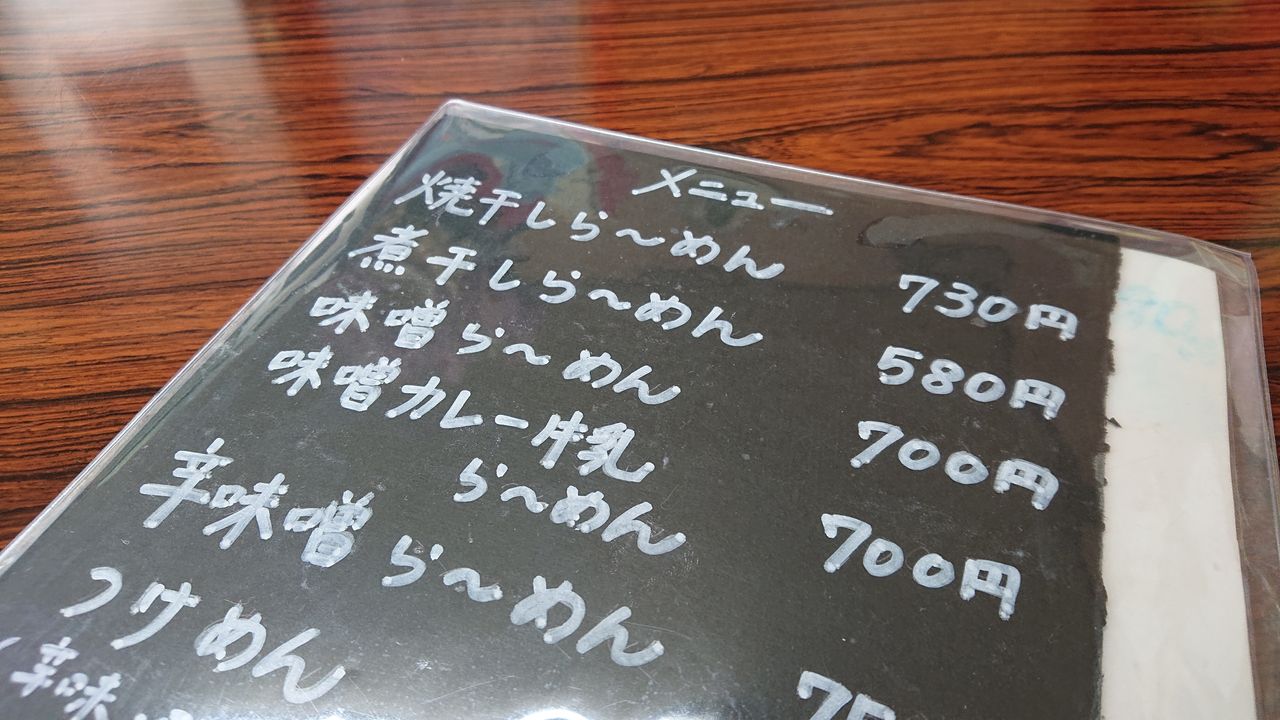 メニュー
焼干しら〜めん 730円
煮干しら〜めん 580円
味噌ら〜めん 700円
味噌カレー牛乳
ら〜めん 700円
辛味噌ら〜めん 75
つけめん
辛味